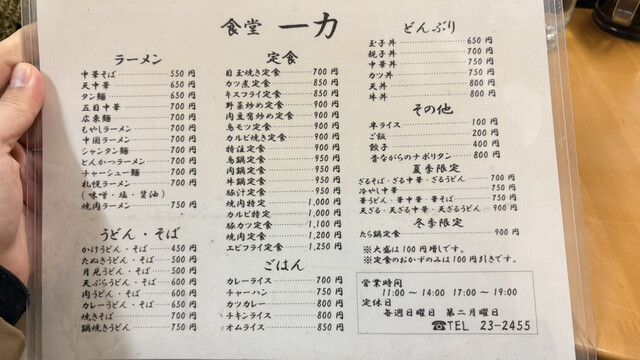 食堂 一力
ラーメン
中華そば 550円
天中華 650円
タン麺 650円
五目中華 700円
広東麺 700円
もやしラーメン 700円
中国ラーメン 700円
シャンタン麺 700円
とんかつラーメン 700円
チャーシュー麺 700円
札幌ラーメン 700円
(味噌・塩・醤油)
焼肉ラーメン 750円
うどん・そば
かけうどん・そば 450円
たぬきうどん・そば 500円
月見うどん・そば 500円
天ぷらうどん・そば 600円
肉うどん・そば 600円
カレーうどん・そば 650円
焼きそば 700円
鍋焼きうどん 750円
定食
目玉焼き定食 700円
カツ煮定食 850円
キスフライ定食 850円
野菜炒め定食 900円
肉豆腐炒め定食 900円
鳥モツ定食 900円
カルビ焼き定食 900円
特注定食 950円
鳥鍋定食 950円
肉鍋定食 950円
牛鍋定食 950円
豚汁定食 950円
焼肉特定 1,000円
カルビ特定 1,000円
豚カツ定食 1,100円
焼肉定食 1,200円
エビフライ定食 1,250円
ごはん
カレーライス 700円
チャーハン 750円
カツカレー 800円
チキンライス 800円
オムライス 850円
どんぶり
玉子丼 650円
親子丼 700円
中華丼 750円
カツ丼 750円
天丼 800円
牛丼 800円
その他
半ライス 100円
ご飯 200円
餃子 400円
昔ながらのナポリタン 800円
夏季限定
ざるそば・ざる中華・ざるうどん 700円
冷やし中華 750円
華うどん・華中華・華そば 750円
天ざる・天ざる中華・天ざるうどん 900円
冬季限定
たら鍋定食 900円
※大盛は100円増しです。
※定食のおかずのみは100円引きです。
営業時間
11:00～14:00 17:00～19:00
定休日
毎週日曜日 第二月曜日
☎TEL 23-2455